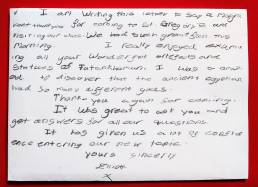 I am writing this letter to say a massive
thank you for coming to St Gregory's and
visiting our class. We had such great fun this
morning. I really enjoyed examin
ing all your wonderful artefacts and
statues of Tutankhamun. I was amazed
to discover that the ancient egyptian
had so many different gods.
Thank you again for coming.
It was great to ask you and
get answers for all our questions.
It has given us a lot of confid
ence entering our new topic.
yours sincerly
x